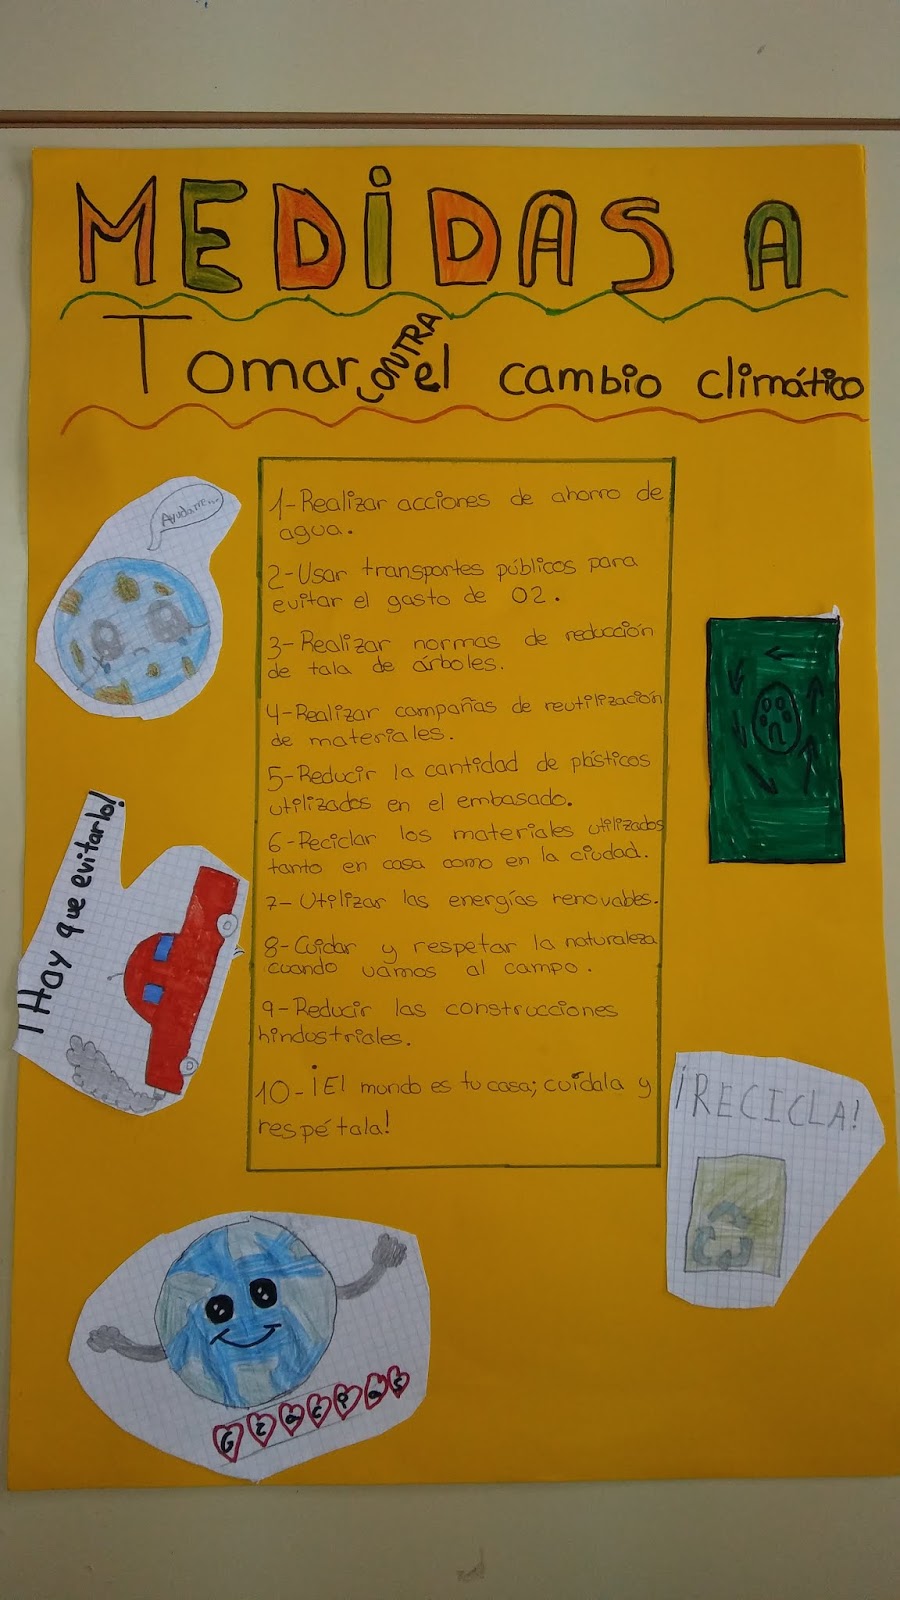 MEDIDAS A
Tomar CONTRA el cambio climático
Ayudame...
1-Realizar acciones de ahorro de
agua.
2-Usar transportes públicos para
evitar el gasto de O2.
3-Realizar normas de reducción
de tala de árboles.
4-Realizar campañas de reutilización
de materiales.
5-Reducir la cantidad de plásticos
utilizados en el embasado.
6-Reciclar los materiales utilizados
tanto en casa como en la ciudad.
7-Utilizar las energías renovables.
8-Cuidar y respetar la naturaleza
cuando vamos al campo.
9-Reducir las construcciones
hindustriales.
10-¡El mundo es tu casa; cuídala y
respétala!
¡Hay que evitarlo!
¡RECICLA!
Gracias